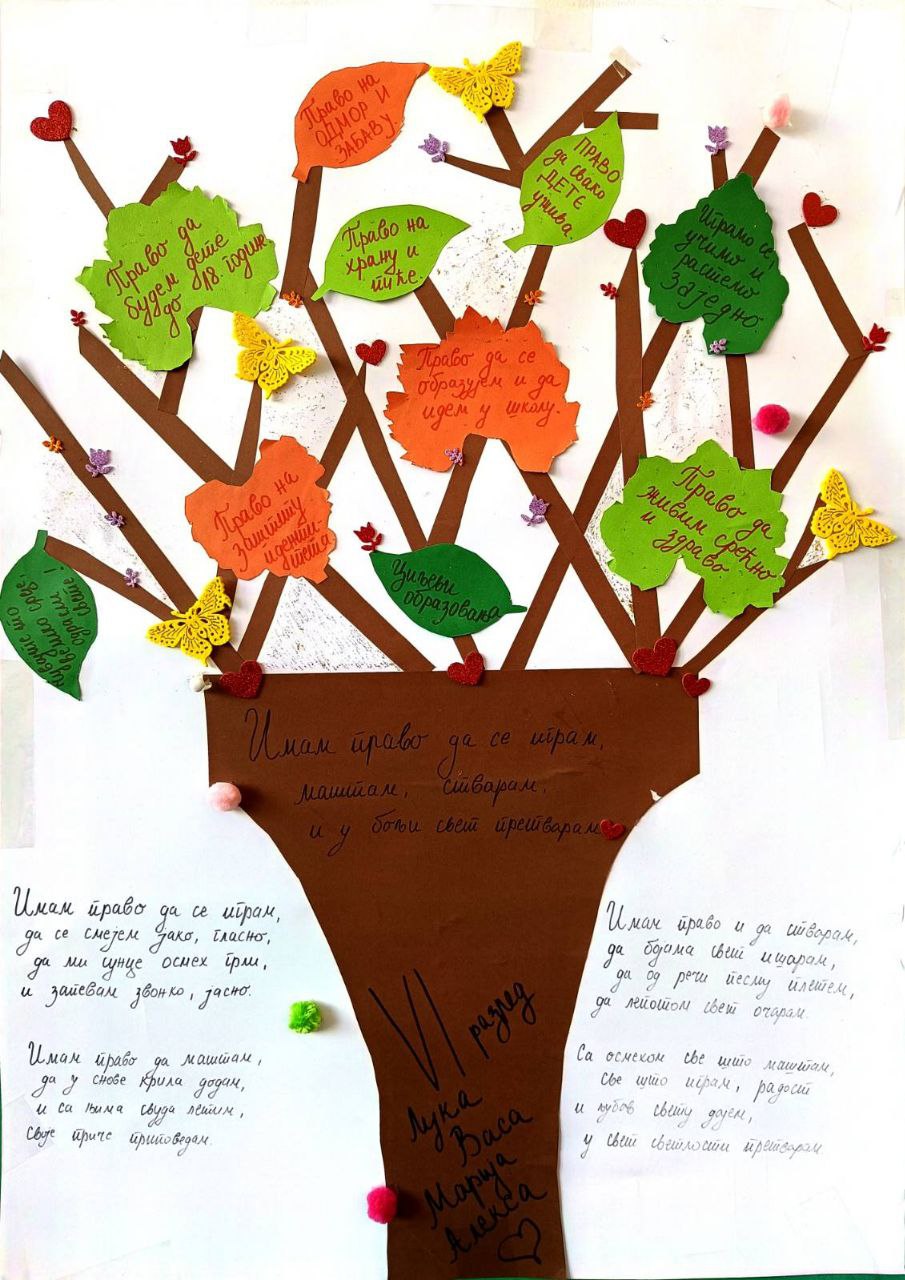 Право на
ОДМОР И
ЗАБАВУ
ПРАВО
да свако
ДЕТЕ
ужива.
Право да
будем дете
до 18 године
Право на
храну и
пиће.
Играмо се
учимо и
растемо
Заједно.
Право да се
образујем и да
идем у школу.
Право на
заштиту
иденти-
тета
Право да
живим срећно
и здраво
Циљеви
образовања
срце,
Имам право да се играм,
маштам, стварам,
и у бољи свет претварам
Имам право да се играм,
да се смејем јако, гласно,
да ми сунце осмех грли,
и запевам звонко, јасно.
Имам право да маштам,
да у снове крила додам,
и са њима свуда летим,
своје приче приповедам.
Имам право и да стварам,
да бојама свет ишарам,
да од речи песму плетем,
да лепотом свет очарам.
Са осмехом све што маштам,
све што играм, радост
и љубав свету дајем,
у свет светлости претварам
VI разред
Лука
Васа
Марија
Алекса